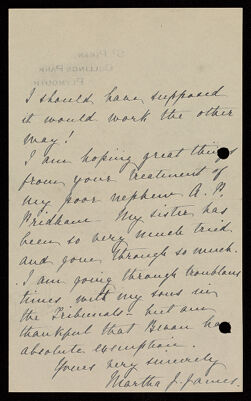 St Piran
Collings Park
Plymouth
I should have supposed
it would work the other
way!
I am hoping great things
from your treatment of
my poor nephew A. P.
Pridham. My sister has
been so very much tried.
and gone through so much.
I am going through troublous
times with my sons in
the Tribunals - but am
thankful that Bevan has
absolute exemption.
Yours very sincerely
Martha J. James.